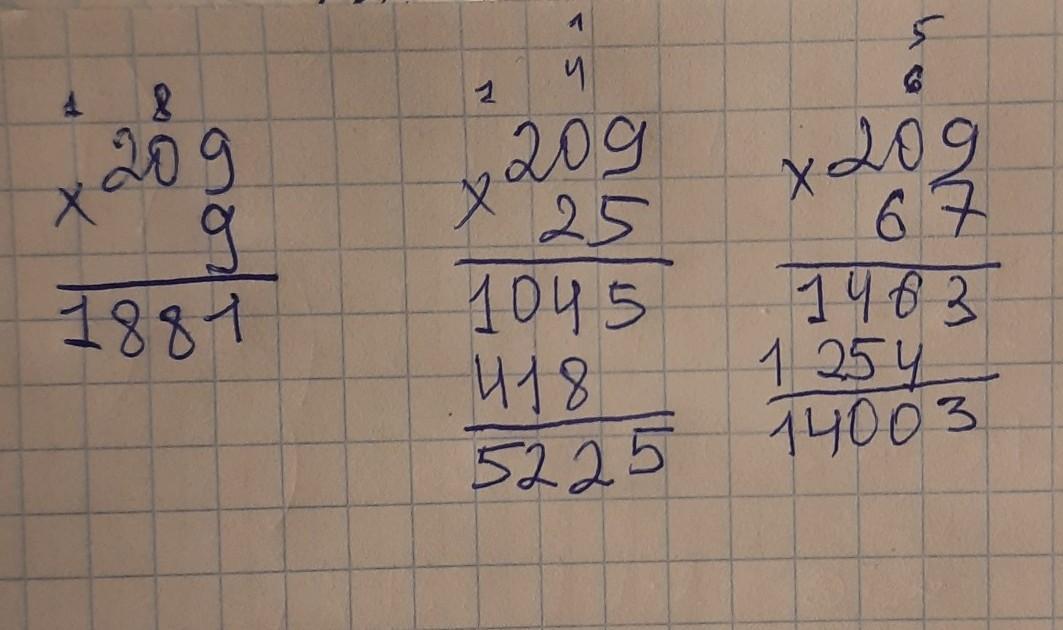 1 8
209
× 9
1881
1
1 4
209
× 25
1045
418
5225
5
6
209
× 67
1463
1254
14003